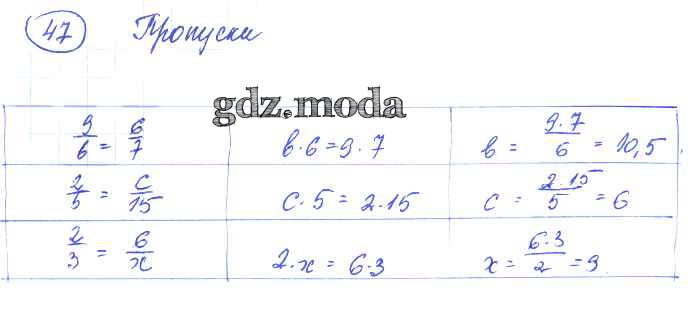 47 Пропуски
gdz.moda
9/в = 6/7 в·6=9·7 в = 9·7/6 = 10,5
2/5 = с/15 с·5 = 2·15 с = 2·15/5 = 6
2/3 = 6/х 2·х = 6·3 х = 6·3/2 = 9